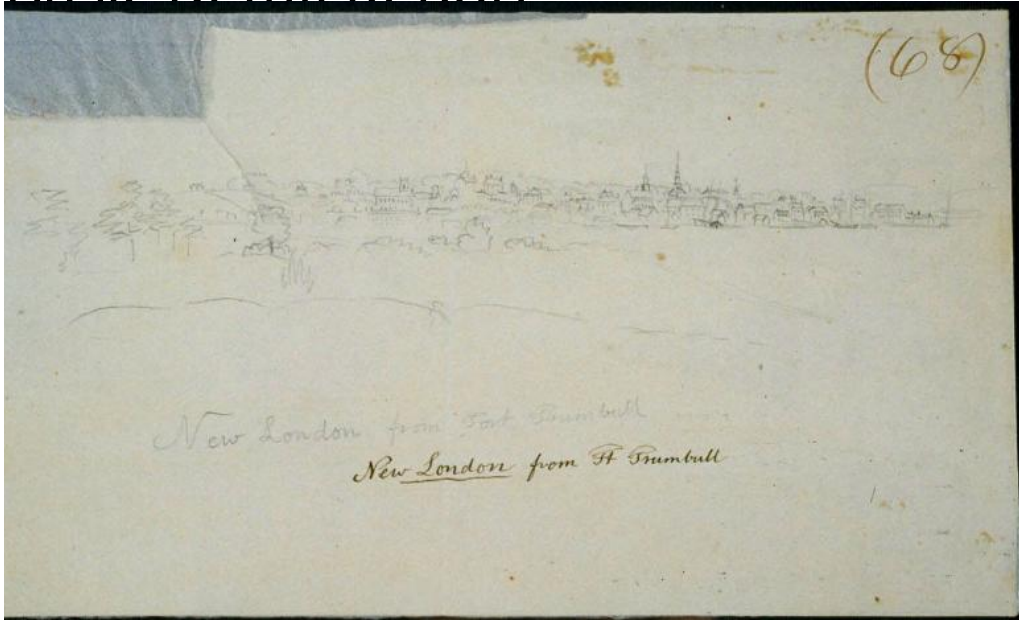 (68)
New London from Fort Trumbull
New London from Ft Trumbull